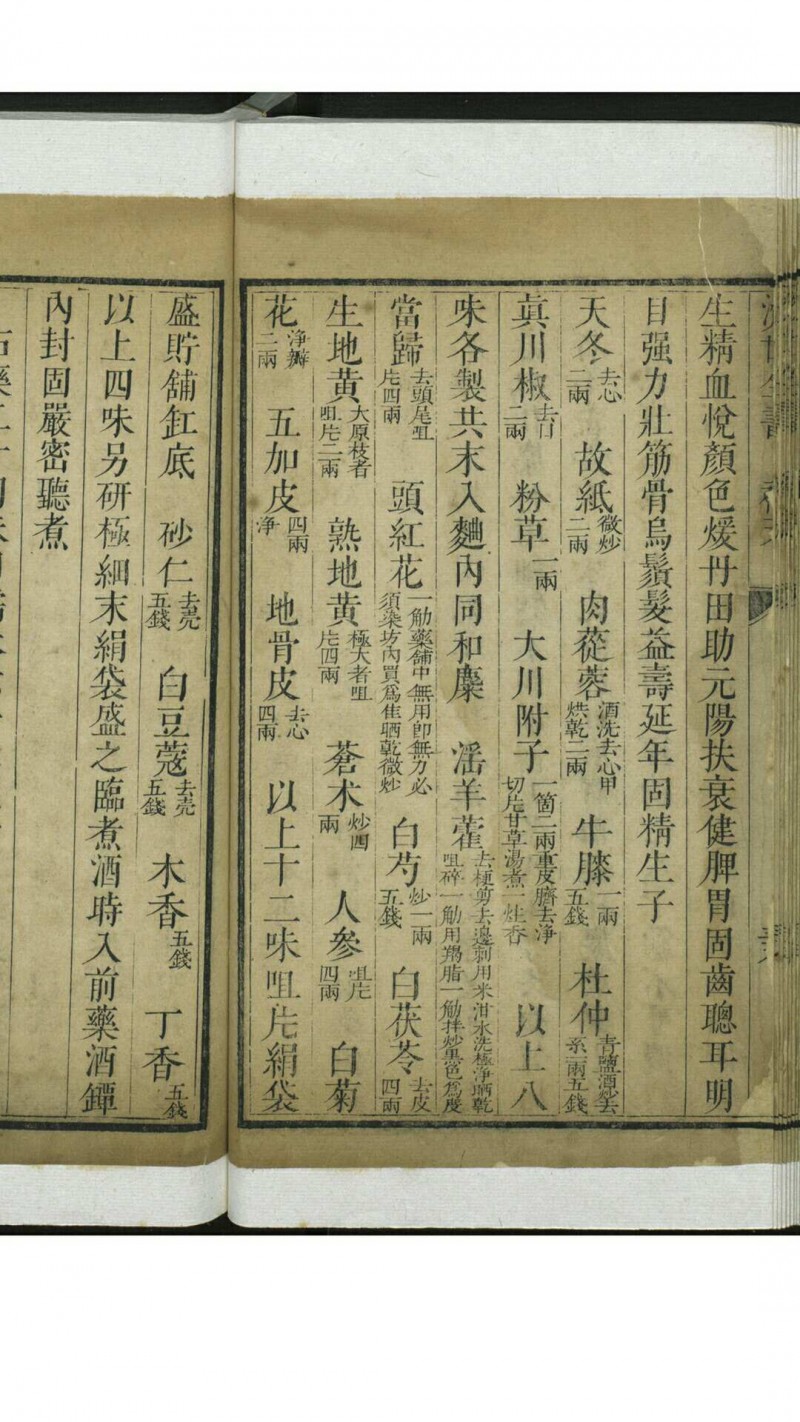 生精血悅顏色煖丹田助元陽扶衰健脾胃固齒聰耳明
目强力壯筋骨烏鬚髮益壽延年固精生子
天冬去心二兩 故紙微炒二兩 肉蓯蓉酒洗去心甲烘乾二兩 牛膝一兩五錢 杜仲青鹽酒炒去糸一兩五錢
真川椒去口二兩 粉草一兩 大川附子一箇二兩重皮臍去净切片甘草湯煮一炷香 以上八
味各製共末入麯內同和麋 滛羊藿去梗剪去邊刺用米泔水洗極淨晒乾咀碎一觔用羯脂一觔拌炒黑色爲度
當歸去頭尾咀片四兩 頭紅花一觔藥舖中無用卽無力必須染坊內買爲佳晒乾微炒 白芍炒一兩五錢 白茯苓去皮四兩
生地黃大原枝者咀片二兩 熟地黃極大者咀片四兩 蒼朮炒四兩 人參咀片四兩 白菊
花淨瓣二兩 五加皮四兩淨 地骨皮去心四兩 以上十二味咀片絹袋
盛貯舖缸底 砂仁去壳五錢 白豆蔻去壳五錢 木香五錢 丁香五錢
以上四味另研極細末絹袋盛之臨煮酒時入前藥酒罈
內封固嚴密聽煮